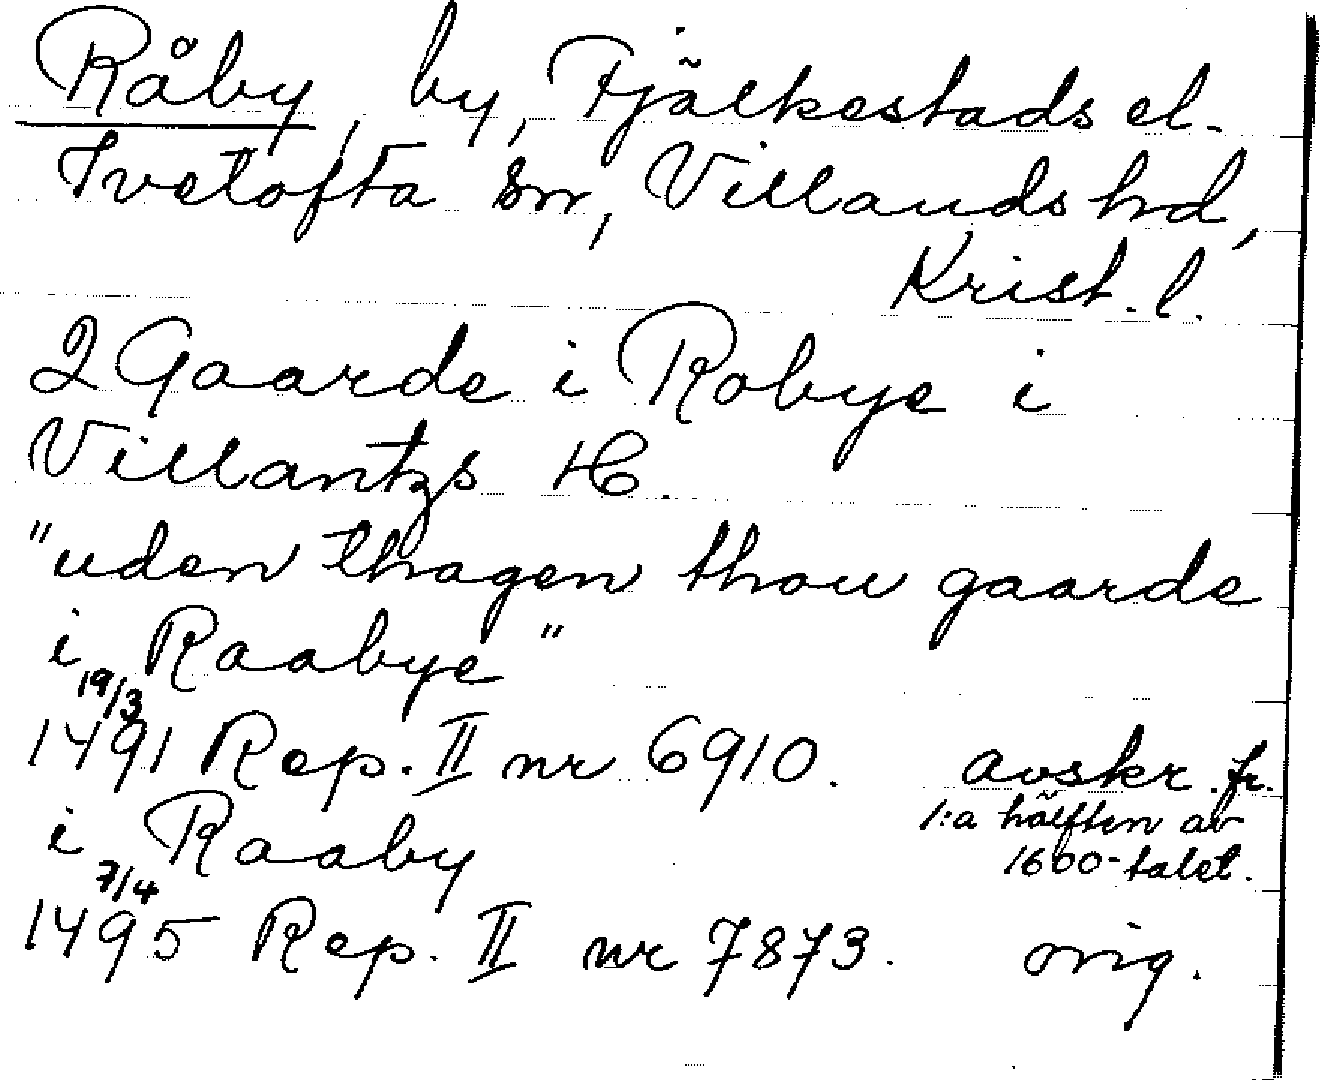 Råby, by, Fjälkestads el.
Ivetofta sn, Villands hd,
Krist. l.
2 Gaarde i Robye i
Villantzs H.
"uden thagen thou gaarde
i Raabye"
19/3
1491 Rep. II nr 6910. avskr. fr.
1:a hälften av
1600-talet.
i Raaby
7/4
1495 Rep. II nr 7873. orig.